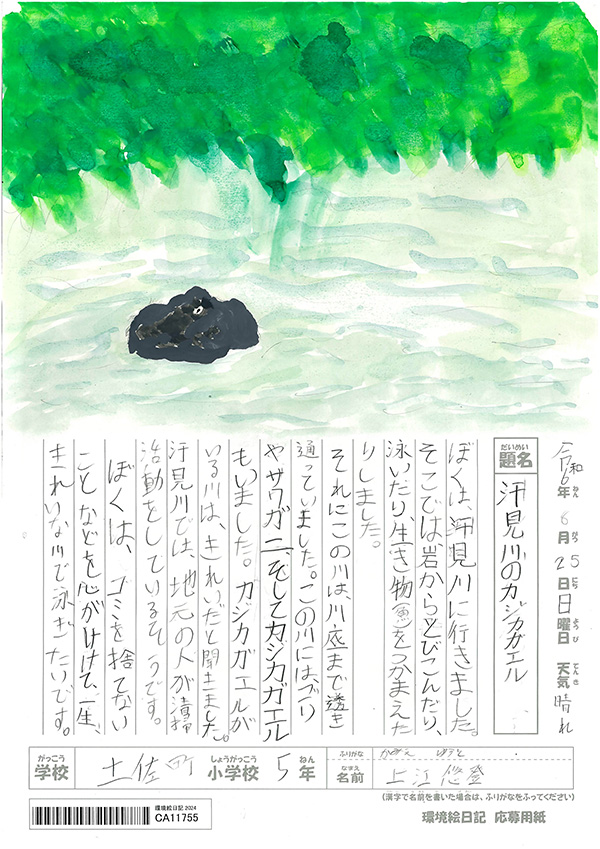 令和6年 8月25日 日曜日 天気 晴れ
ねん がつ にち ようび てんき
だいめい
題名 汗見川のカジカガエル
ぼくは、汗見川に行きました。
そこでは岩からとびこんだり、
泳いだり、生き物(魚)をつかまえた
りしました。
それにこの川は川底まで透き
通っていました。この川にはゴリ
やサワガニ、そしてカジカガエル
もいました。カジカガエルが
いる川は、きれいだと聞きました。
汗見川では、地元の人が清掃
活動をしているそうです。
ぼくは、ゴミを捨てない
ことなどを心がけて、一生、
きれいな川で泳ぎたいです。
がっこう
学校 土佐町 しょうがっこう 小学校 5 ねん 年
ふりがな かみえ ゆうと
なまえ
名前 上江 悠登
(漢字で名前を書いた場合は、ふりがなをふってください)
環境絵日記 2024
CA11755
環境絵日記 応募用紙